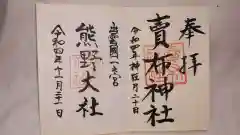 奉拝
賣布神社
令和四年神在月二十日
出雲國一之宮
熊野大社
令和四年十一月二十一日